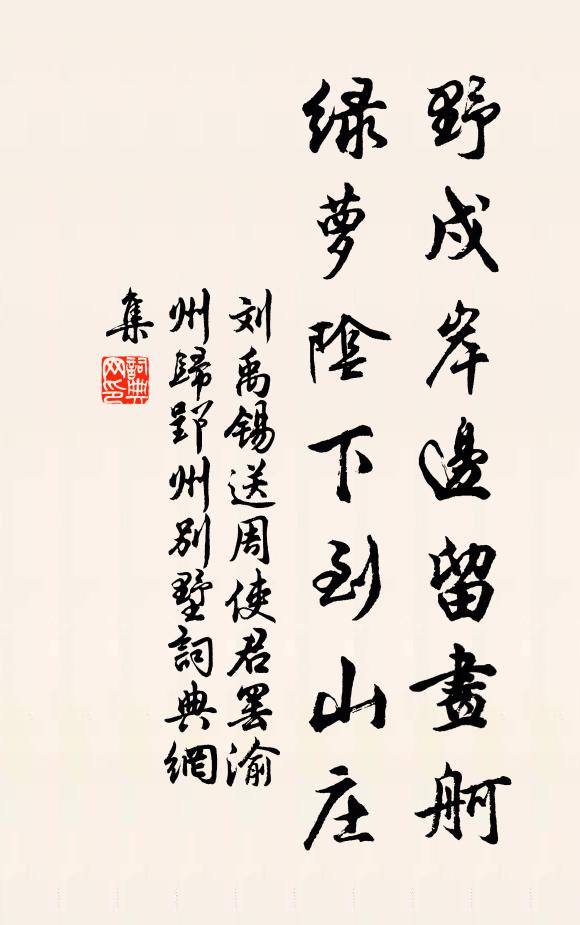 野戍岸邊留畫舸
绿萝陰下到山庄
刘禹锡送周使君罢渝
州歸郢州别墅詞典網
集
詞典
网印